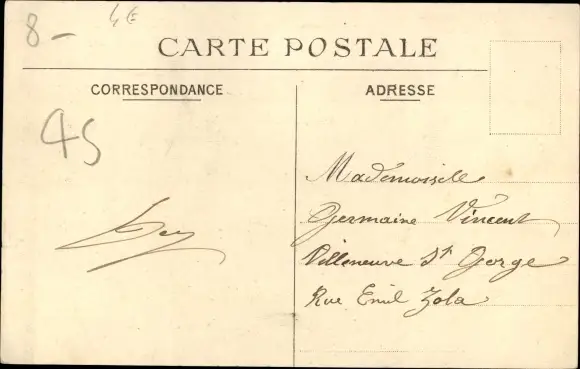 8 -
4€
CARTE POSTALE
CORRESPONDANCE
ADRESSE
45
Mademoiselle
Germaine Vincent
Villeneuve St Gorge
Rue Emil Zola